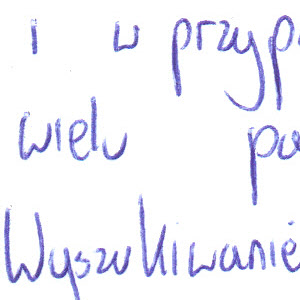 i w przyp
wielu pa
Wyszukiwanie